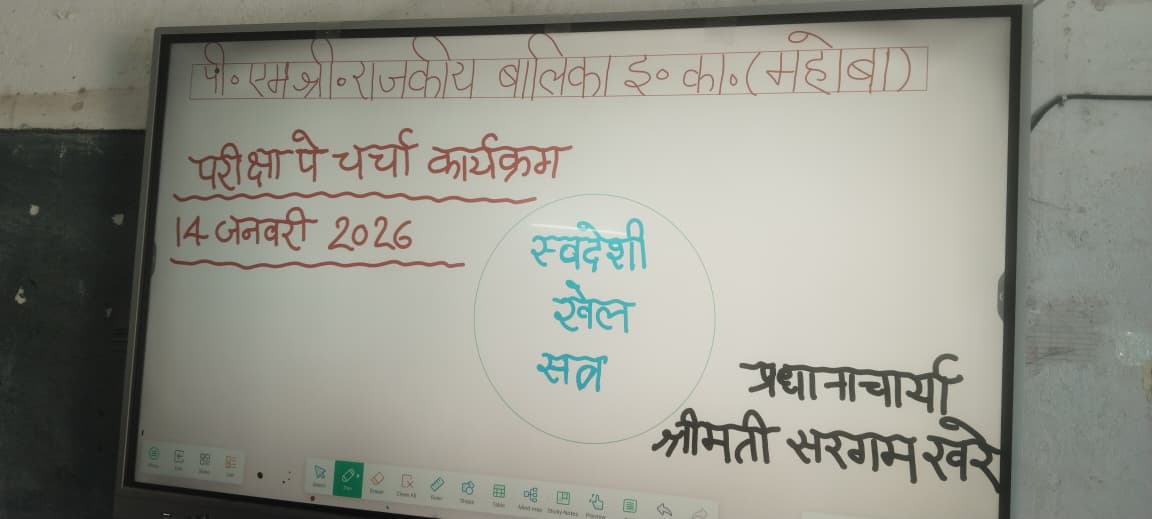 पी॰ एमश्री॰ राजकीय बालिका इ॰ का॰ (महोबा)
परीक्षा पे चर्चा कार्यक्रम
14 जनवरी 2026
स्वदेशी
खेल
सत्र
प्रधानाचार्या
श्रीमती सरगम खरे
Select
Pen
Eraser
Clear All
Ruler
Shape
Table
Mind map
Sticky Notes
Preview